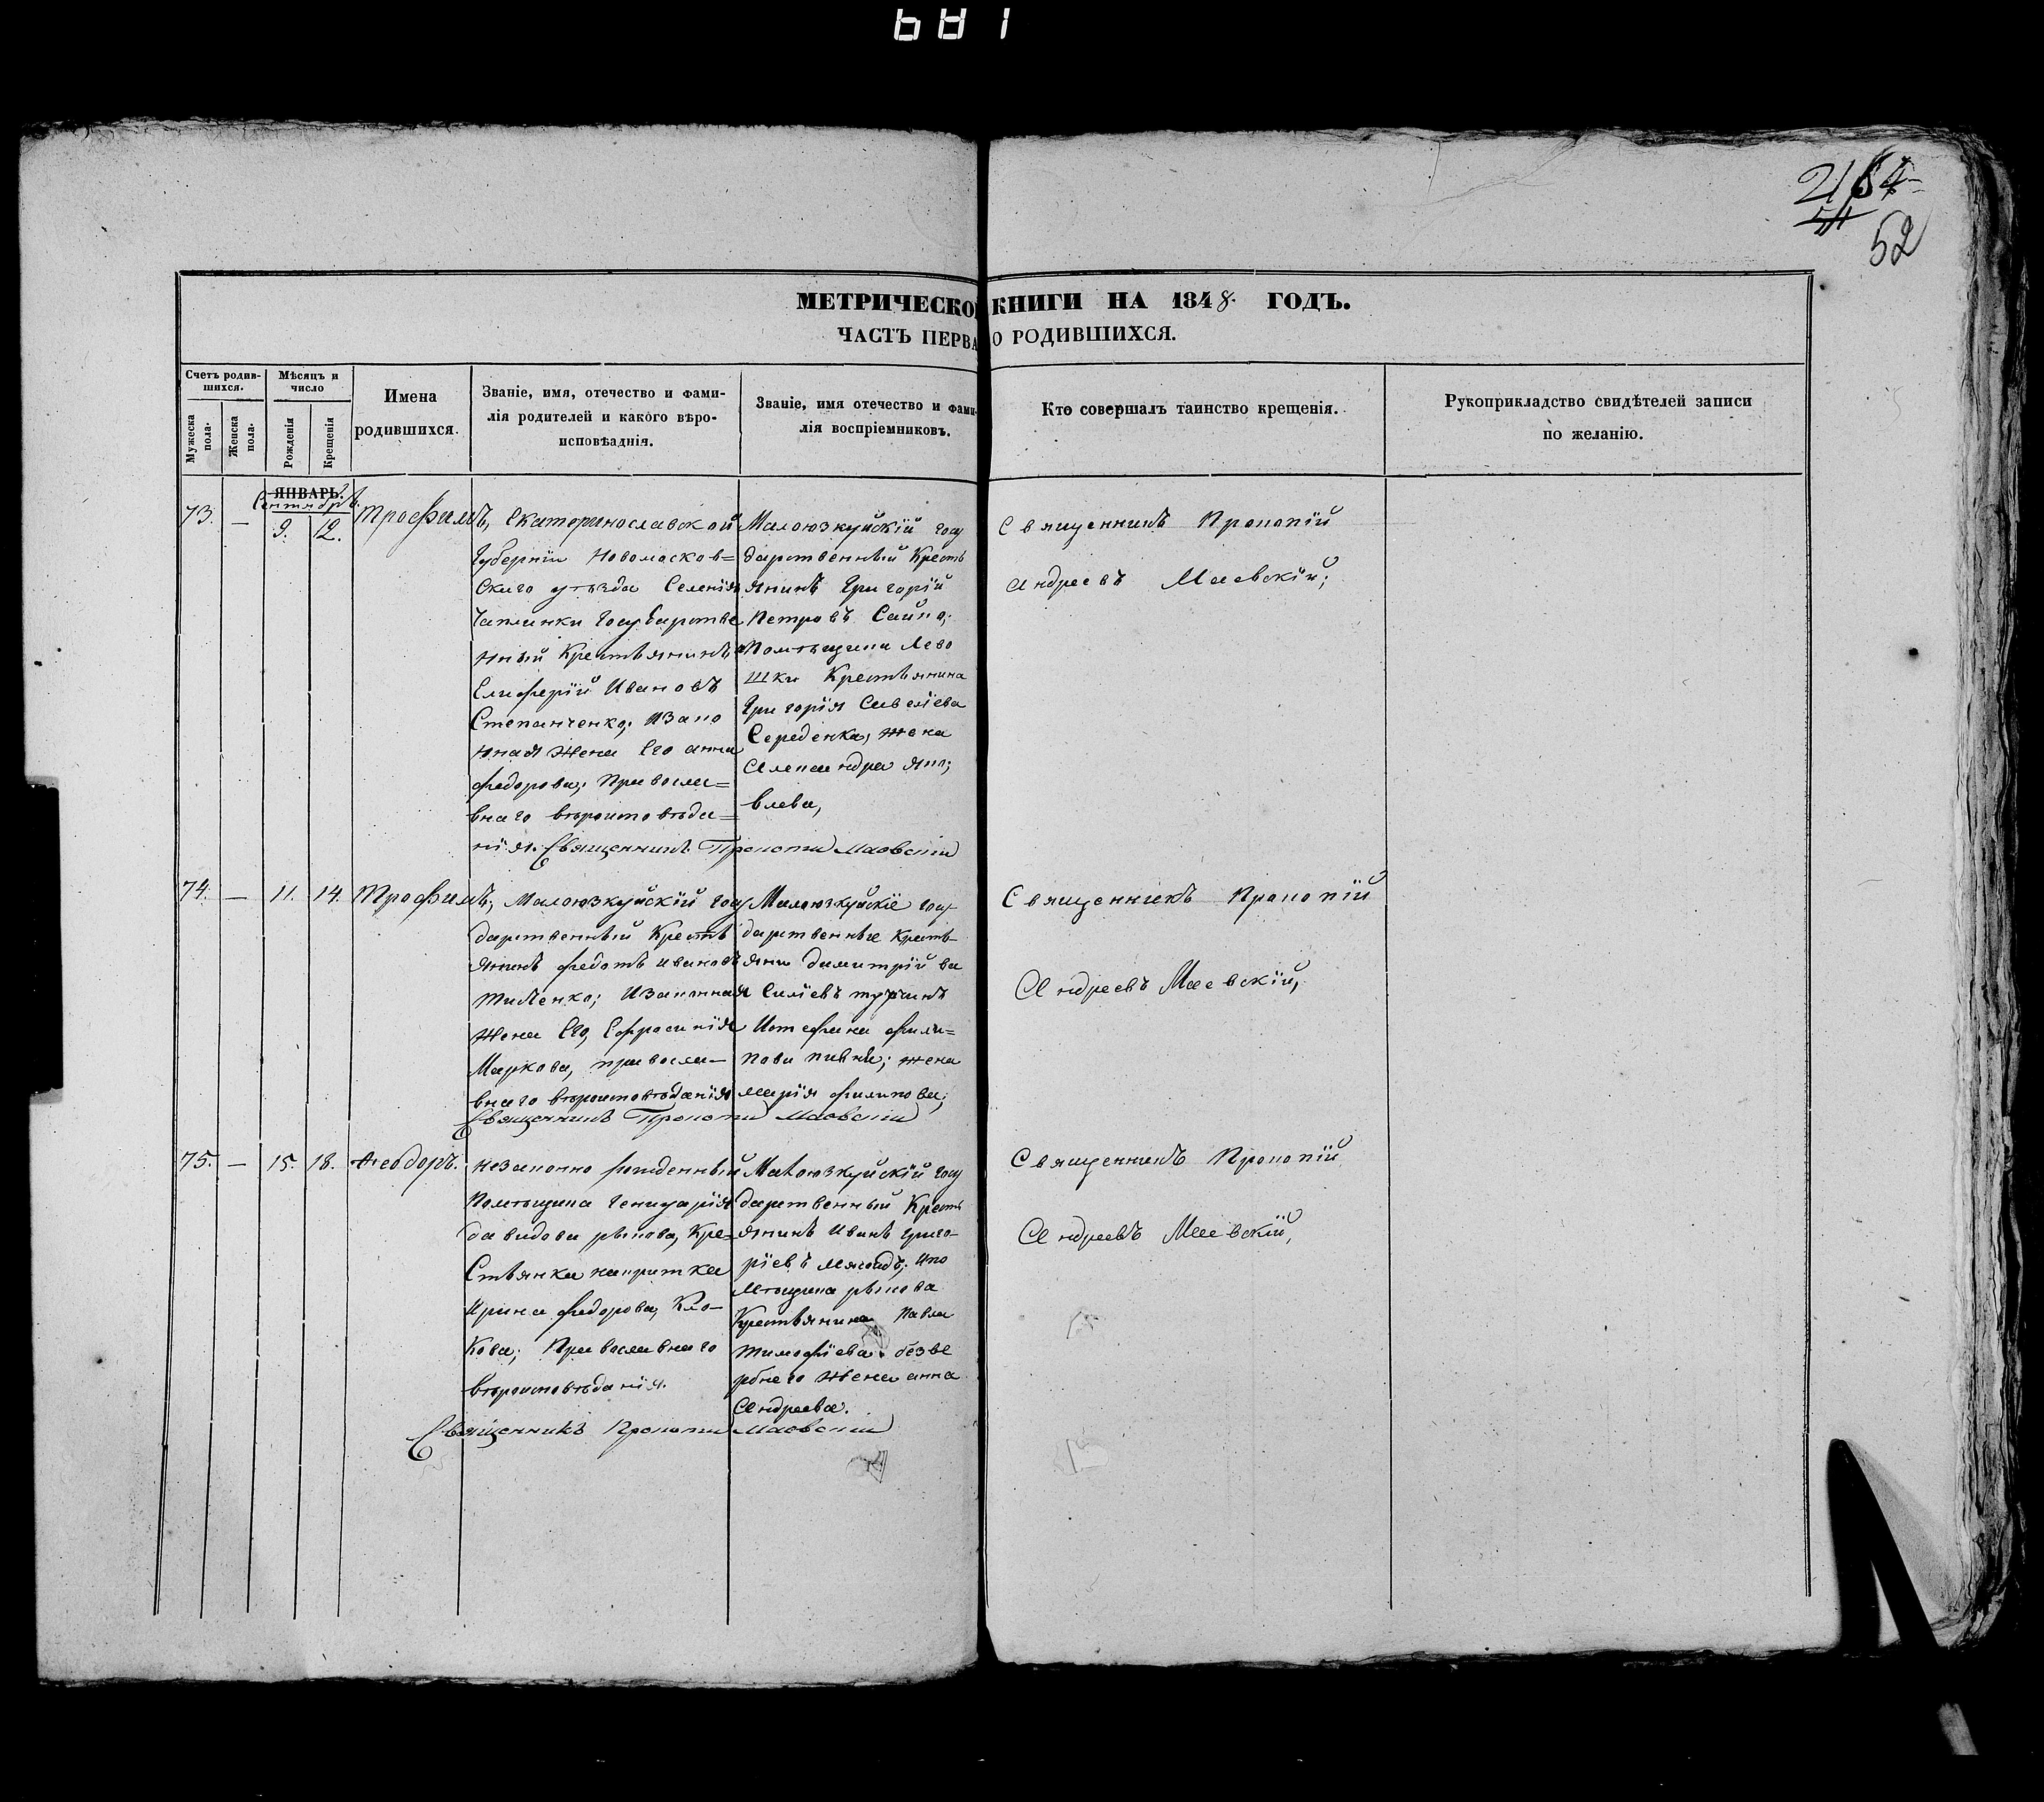 189
2154
54
52
МЕТРИЧЕСКО КНИГИ НА 1848. ГОДЪ.
ЧАСТЬ ПЕРВА О РОДИВШИХСЯ.
Счетъ родив-
шихся.
Мужеска
пола.
Женска
пола.
Мѣсяцъ и
число
Рожденія
Крещенія
Имена
родившихся.
Званіе, имя, отечество и фами-
лія родителей и какого вѣро-
исповѣаднія.
Званіе, имя отечество и фами-
лія воспріемниковъ.
Кто совершалъ таинство крещенія.
Рукоприкладство свидѣтелей записи
по желанію.
ЯНВАРЬ.
Сентябрь.
73. — 9. 12. Трофимъ,
Екатеринославской
Губерніи Новомосков=
скаго уѣзда Селенія
Чаплинки Государстве
нный Крестьянинъ
Елиферій Ивановъ
Степанченко; Изако
нная Жена Его анна
федорова; Православ=
внаго вѣроисповѣда=
нія.
Малоюзкуйскій госу
дарственный Кресть
янинъ Григорій
Петровъ Сайко;
Помѣщика Лево
шки Крестьянина
Григорія Савелiева
Середенка, жена
Александра Яко;
влева,
Священникъ Прокопій
андреевъ Маевскій;
Священникъ Прокопи Маовскии
74. — 11. 14. Трофимъ,
Малоюзкуйскій госу
дарственный Кресть
янинъ федотъ ивановъ
Изаконная
Жена Его, Ефросинія
Маркова, православ—
внаго вѣроисповѣданія
Малоюзкуйскіе госу
дарственные Кресть-
яни димитрій ва
силіевъ
фили=
пова жена
марія филипова;
Священникъ Прокопій
Андреевъ Маевскій,
Священникъ Прокопи Маовскии
75. — 15. 18. Феодоръ.
незаконно рожденный
Помѣщика
давидова рыкова, Кре=
стьянка
Ирина федорова,
Православнаго
вѣроисповѣданія.
Малоюзкуйскій госу
дарственный Кресть
янинъ Иванъ григо-
ріевъ ипо
мѣщика рыкова
Крестьянина Павла
Тимофіева безве
рбнего Жена анна
Андреева.
Священникъ Прокопій
Андреевъ Маевскій,
Священникъ Прокопи Маовскии